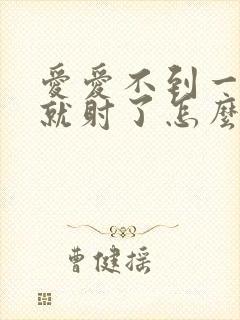 愛愛不到一
就射了怎麼
曹健摇